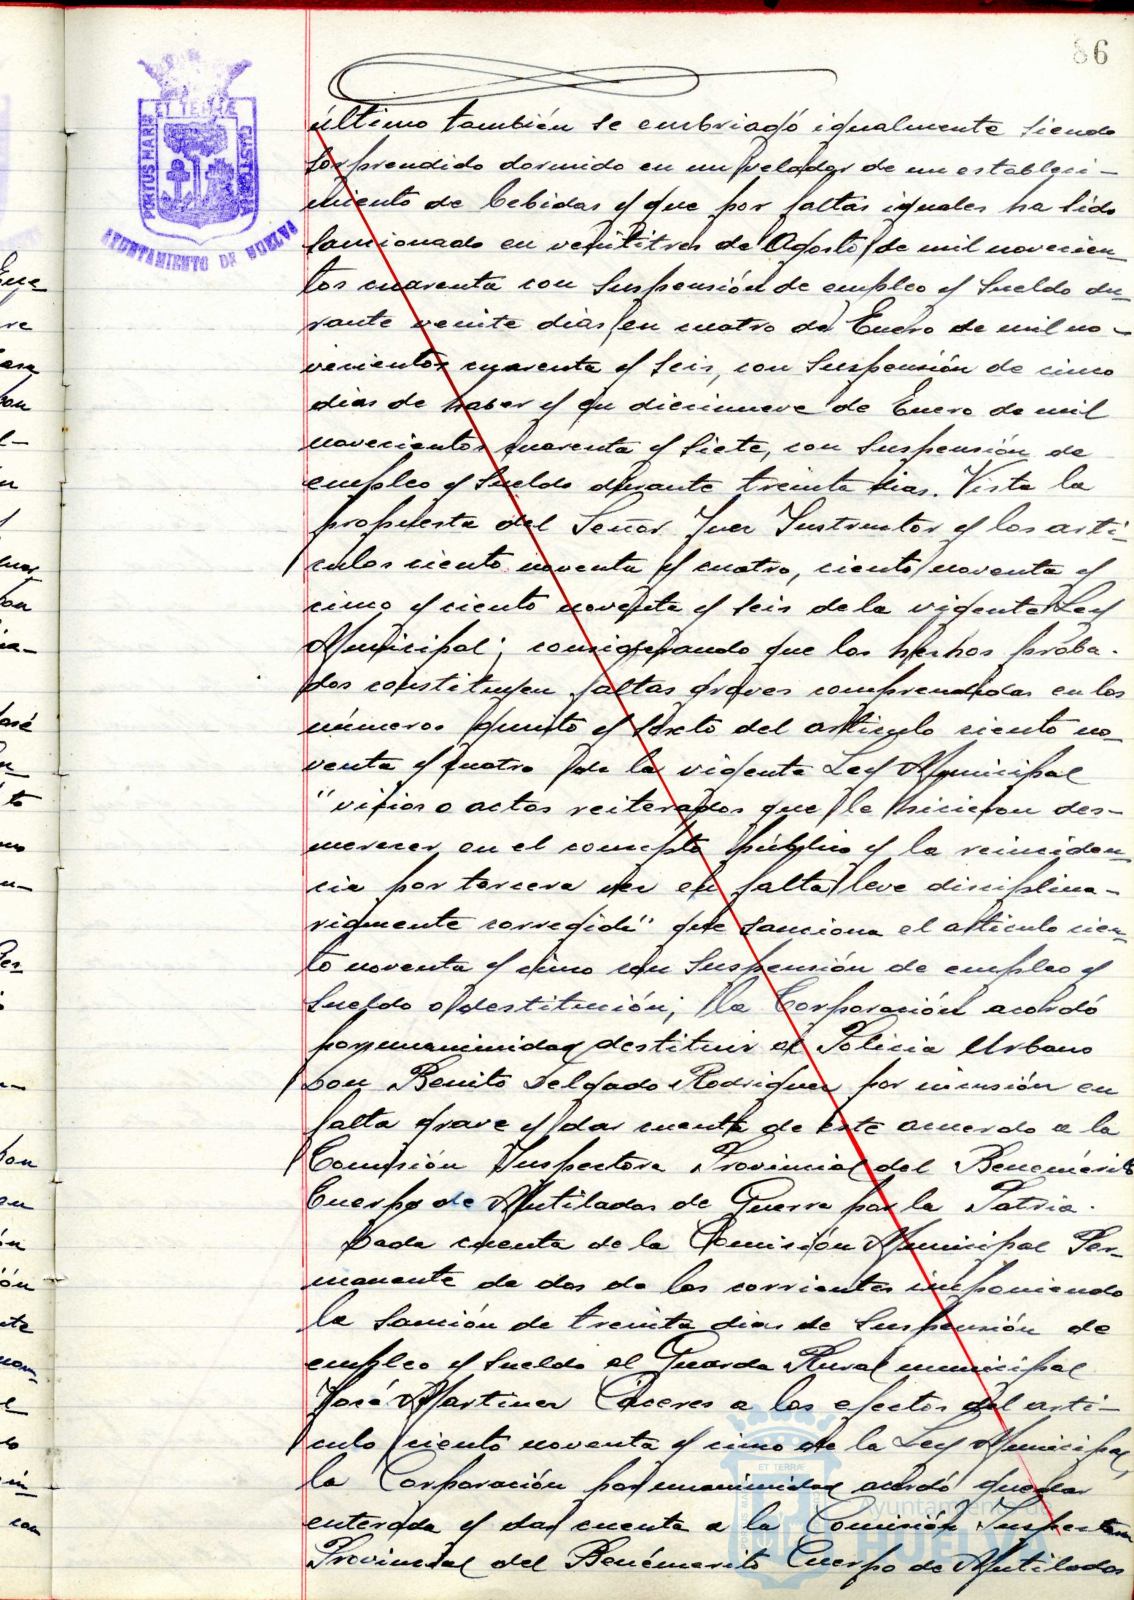 86
PORTUS MARIS ET TERRÆ CUSTODIA
AYUNTAMIENTO DE HUELVA
último también se embriagó igualmente siendo
sorprendido dormido en un velador de un estableci-
miento de bebidas y que por faltas iguales ha sido
sancionado en veintitres de Agosto de mil novecien
tos cuarenta con suspensión de empleo y sueldo du-
rante veinte dias, en cuatro de Enero de mil no-
vecientos cuarenta y seis, con suspensión de cinco
dias de haber y en diecinueve de Enero de mil
novecientos cuarenta y siete, con suspensión de
empleo y sueldo durante treinta dias. Vista la
propuesta del Señor Juez Instructor y los arti-
culos ciento noventa y cuatro, ciento noventa y
cinco y ciento noventa y seis de la vigente Ley
Municipal; considerando que los hechos proba-
dos constituyen faltas graves comprendidas en los
números quinto y sexto del articulo ciento no-
venta y cuatro de la vigente Ley Municipal
"vicios o actos reiterados que le hicieron des-
merecer en el concepto público y la reinciden
cia por tercera vez en falta leve disciplina-
riamente corregida" que sanciona el articulo cien-
to noventa y cinco con suspensión de empleo y
sueldo o destitución; la Corporación acordó
por unanimidad destituir al Policia Urbano
Don Benito Delgado Rodriguez por incusión en
falta grave y dar cuenta de este acuerdo a la
Comisión Inspectora Provincial del Benemérito
Cuerpo de Mutilados de Guerra por la Patria.
Dada cuenta de la Comisión Municipal Per-
manente de dos de los corrientes imponiendo
la sanción de treinta dias de suspensión de
empleo y sueldo al Guarda Rural municipal
José Martinez Cáceres a los efectos del arti-
culo ciento noventa y cinco de la Ley Municipal,
la Corporación por unanimidad acordó quedar
enterada y dar cuenta a la Comisión Inspectora
Provincial del Benémerito Cuerpo de Mutilados
ET TERRÆ
Ayuntamiento de
HUELVA